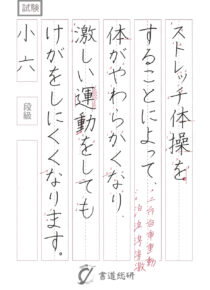 試験
ストレッチ体操を
することによって、
体がやわらかくなり、
激しい運動をしても
けがをしにくくなります。
小六
段級
書道総研